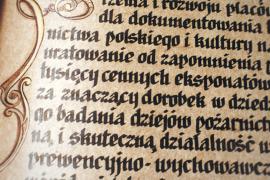 rzenia i rozwoju placów
dla dokumentowania
nictwa polskiego i kultury na
uratowanie od zapomnienia
tysięcy cennych eksponatów
za znaczący dorobek w dziedz
go badania dziejów pożarnic
na, i skuteczną działalność w
prewencyjno-wychowawcz